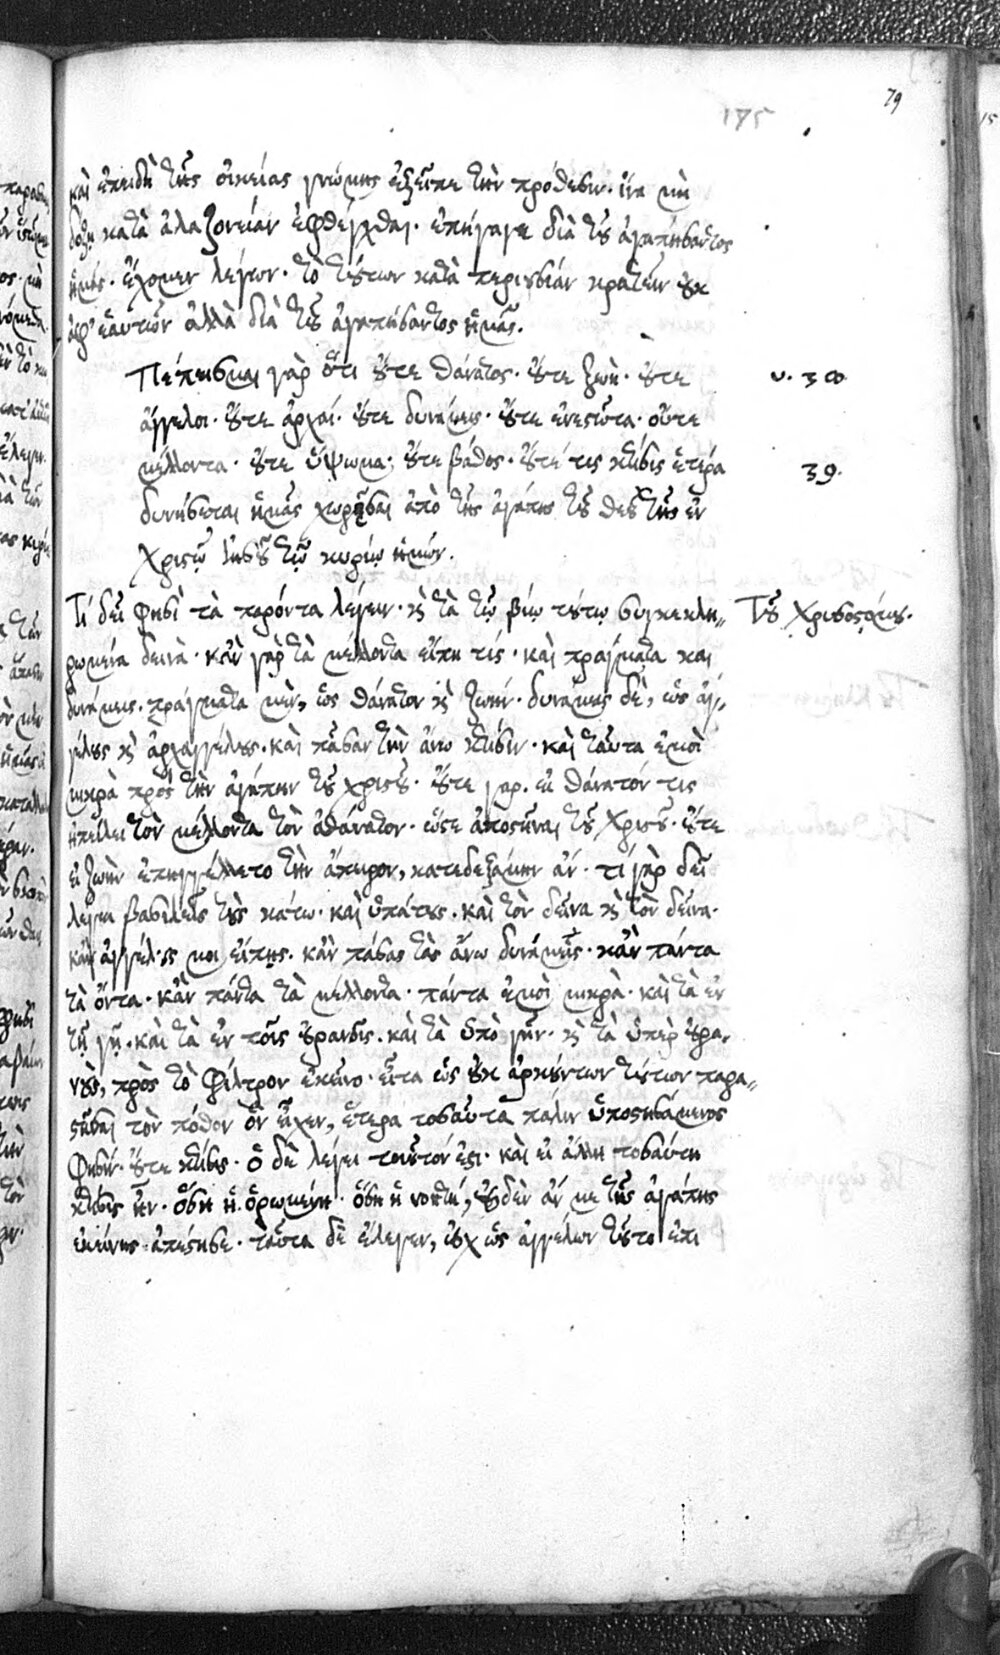 79
175
καὶ ἐπειδὴ τῆς οἰκείας γνώμης ἐξεῖπε τὴν πρόθεσιν· ἵνα μὴ
δόξῃ κατὰ ἀλαζονείαν ἐφθέγχθαι· ἐπήγαγε διὰ τοῦ ἀγαπήσαντος
ἡμᾶς· ἔχομεν λέγων· τὸ τούτων κατὰ περιουσίαν κρατεῖν οὐκ
ἀφ' ἑαυτῶν ἀλλὰ διὰ τοῦ ἀγαπήσαντος ἡμᾶς.
Πέπεισμαι γὰρ ὅτι οὔτε θάνατος· οὔτε ζωὴ· οὔτε
υ. 38
ἄγγελοι· οὔτε ἀρχαί· οὔτε δυνάμεις· οὔτε ἐνεστῶτα· οὔτε
μέλλοντα· οὔτε ὕψωμα; οὔτε βάθος· οὔτέ τις κτίσις ἑτέρα
39.
δυνήσεται ἡμᾶς χωρῆσαι ἀπὸ τῆς ἀγάπης τοῦ θεοῦ τῆς ἐν
Χριστῷ ἰησοῦ τῷ κυρίῳ ἡμῶν.
Τί δεῖ φησὶ τὰ παρόντα λέγειν· κὶ τὰ τῷ βίῳ τούτῳ συγκεκλη„
Τοῦ Χρυσοστόμου.
ρωμένα δεινὰ· κἂν γὰρ τὰ μέλλοντα εἴπῃ τίς· καὶ πράγματα καὶ
δυνάμεις· πράγματα μὲν, ὡς θάνατον κὶ ζωήν· δυνάμεις δὲ, ὡς ἀγ„
γέλους κὶ ἀρχαγγέλους· καὶ πᾶσαν τὴν ἄνω κτίσιν· καὶ ταῦτα ἐμοὶ
μικρὰ πρὸς τὴν ἀγάπην τοῦ χριστοῦ· οὔτε γαρ· εἰ θάνατόν τις
ἠπείλει τὸν μέλλοντα τὸν ἀθάνατον· ὥστε ἀποστῆναι τοῦ Χριστοῦ· οὔτε
εἰ ζωὴν ἐπηγγέλλετο τὴν ἄπειρον, κατεδεξάμην ἄν· τί γὰρ δεῖ
λέγειν βασιλεῖς τοὺς κάτω· καὶ ὑπάτους· καὶ τὸν δεῖνα κὶ τὸν δεῖνα·
κἂν ἀγγέλους μοι εἴπῃς· κἂν πάσας τὰς ἄνω δυνάμεις· κἂν πάντα
τὰ ὄντα· κἂν πάντα τὰ μέλλοντα· πάντα ἐμοὶ μικρὰ· καὶ τὰ ἐν
τῇ γῇ· καὶ τὰ ἐν τοῖς οὐρανοῖς· καὶ τὰ ὑπὸ γῆν· κὶ τὰ ὑπὲρ οὐρα„
νοὺς, πρὸς τὸ φίλτρον ἐκεῖνο· εἶτα ὡς οὐκ ἀρκούντων τούτων παρα„
στῆσαι τὸν πόθον ὃν εἶχεν, ἕτερα τοσαῦτα πάλιν ὑποστησάμενος
φησίν· οὔτε κτίσις· ὃ δὲ λέγει τοιοῦτόν ἐστι· καὶ εἰ ἄλλη τοσαύτη
κτίσις ἦν· ὅση ἡ ὁρωμένη· ὅση ἡ νοητὴ, οὐδὲν ἄν με τῆς ἀγάπης
ἐκείνης ἀπέστησε· ταῦτα δὲ ἔλεγεν, οὐχ ὡς ἀγγέλων τοῦτο ἐπι